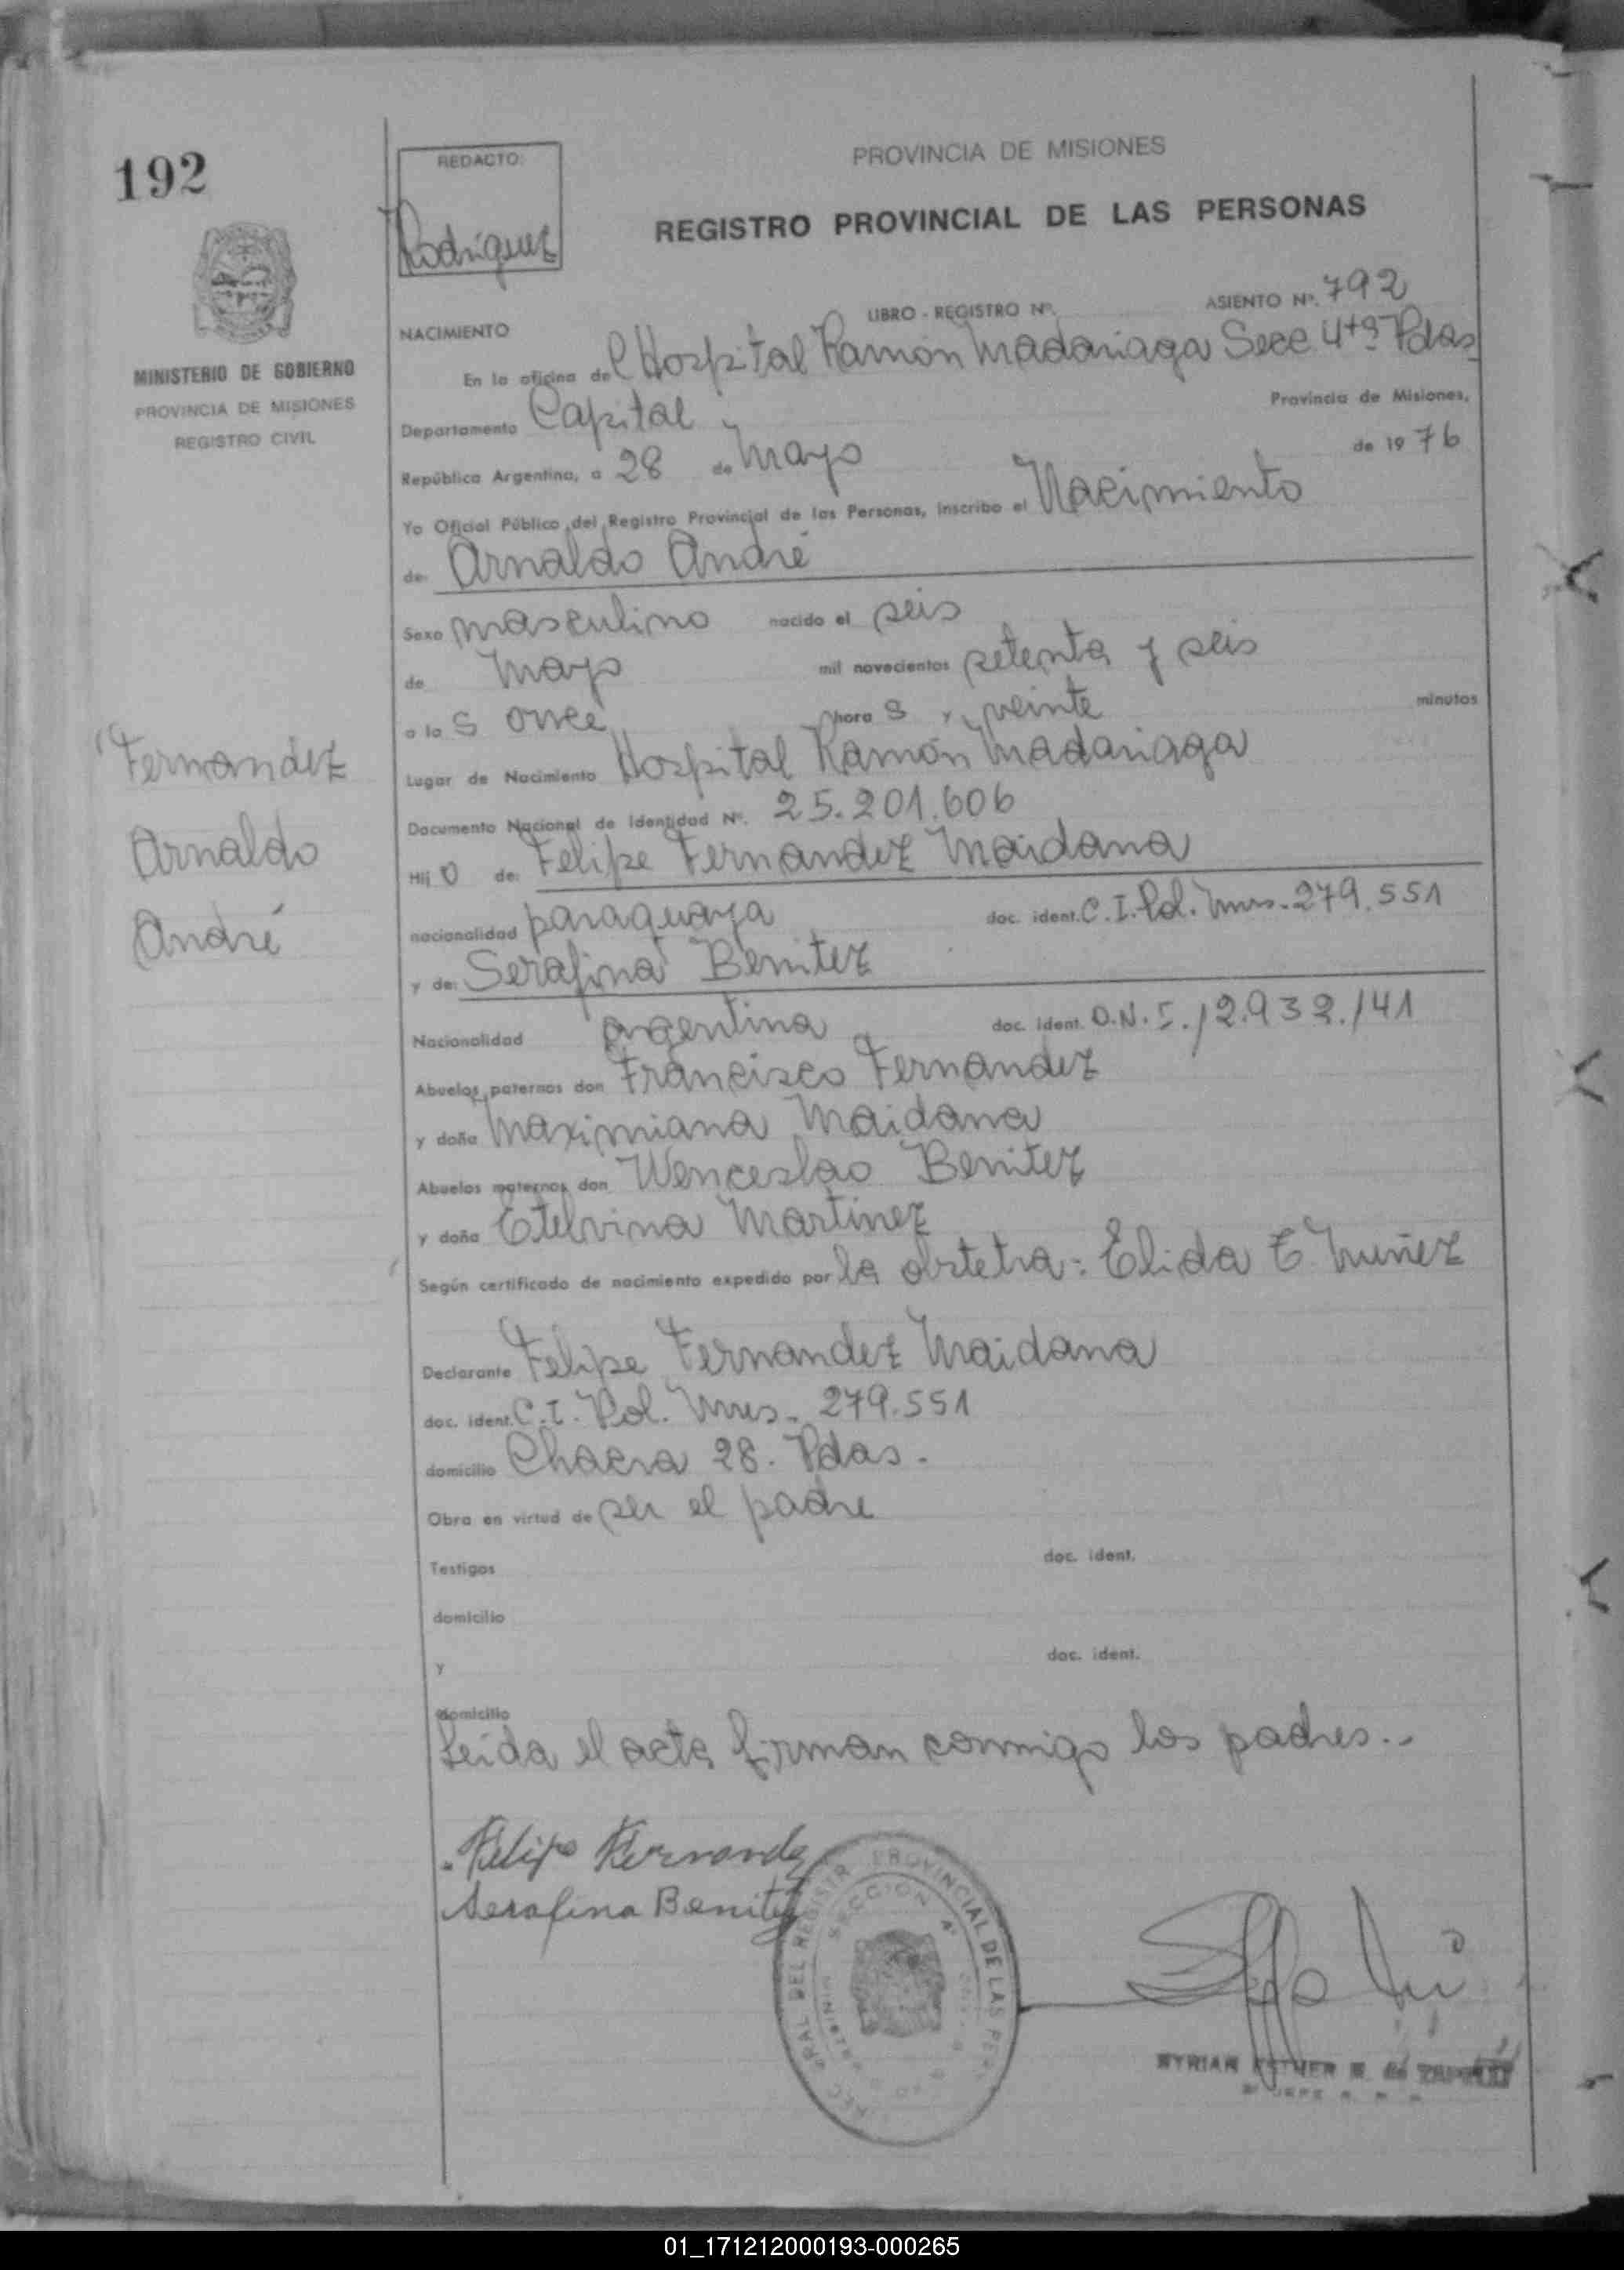 192
REDACTO:
Rodriguez
PROVINCIA DE MISIONES
REGISTRO PROVINCIAL DE LAS PERSONAS
MINISTERIO DE GOBIERNO
PROVINCIA DE MISIONES
REGISTRO CIVIL
LIBRO - REGISTRO Nº. ASIENTO Nº. 792
NACIMIENTO
En la oficina del Hospital Ramón Madariaga Secc 4ta Pdas
Departamento Capital Provincia de Misiones,
República Argentina, a 28 de Mayo de 1976
Yo Oficial Público del Registro Provincial de las Personas, inscribo el Nacimiento
de: Arnaldo André
Sexo masculino nacido el seis
de Mayo mil novecientos setenta y seis
a las once horas y veinte minutos
Lugar de Nacimiento Hospital Ramón Madariaga
Documento Nacional de Identidad Nº. 25.201.606
Hijo de: Felipe Fernandez Maidana
nacionalidad paraguaya doc. ident. C.I. Pol. Mnes. 279.551
y de: Serafina Benitez
Nacionalidad argentina doc. ident. D.N.I. 12.932.141
Abuelos paternos don Francisco Fernandez
y doña Maximiana Maidana
Abuelos maternos don Wenceslao Benitez
y doña Etelvina Martinez
Según certificado de nacimiento expedido por la obstetra: Elida E. Nuñez
Declarante Felipe Fernandez Maidana
doc. ident. C.I. Pol. Mnes. 279.551
domicilio Chacra 28. Pdas.
Obra en virtud de ser el padre
Testigos doc. ident.
domicilio
y doc. ident.
domicilio
Leida el acta firman conmigo los padres..
Fernandez
Arnaldo
André
Felipe Fernandez
Serafina Benitez
REGISTR PROVINCIAL DE LAS PER
SECCION 4ª
MYRIAN ESTHER
01_171212000193-000265